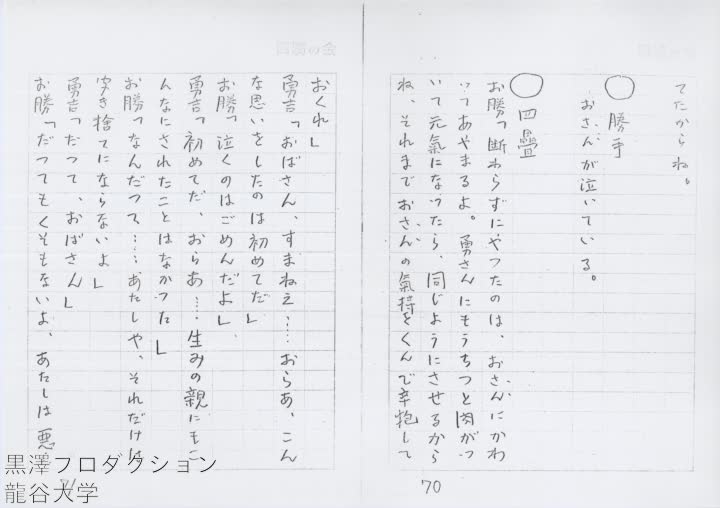 てたからね。
○勝手
おさんが泣いている。
○四疊
お勝「断わらずにやつたのは、おさんにかわ
つてあやまるよ。勇さんにもうちつと肉がつ
いて元氣になつたら、同じようにさせるから
ね、それまでおさんの氣持をくんで辛抱して
70
おくれ」
勇吉「おばさん、すまねえ……おらあ、こん
な思いをしたのは初めてだ」
お勝「泣くのはごめんだよ」
勇吉「初めてだ、おらあ……生みの親にもこ
んなにされたことはなかつた」
お勝「なんだつて……あたしや、それだけは
聞き捨てにならないよ」
勇吉「だつて、おばさん」
お勝「だつてもくそもないよ、あたしは悪
71
黒澤プロダクション
龍谷大学